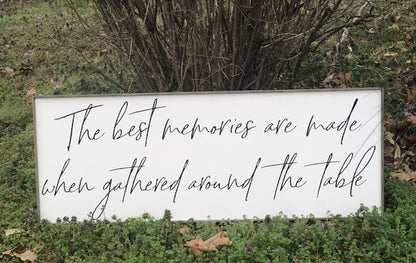 The best memories are made
when gathered around the table